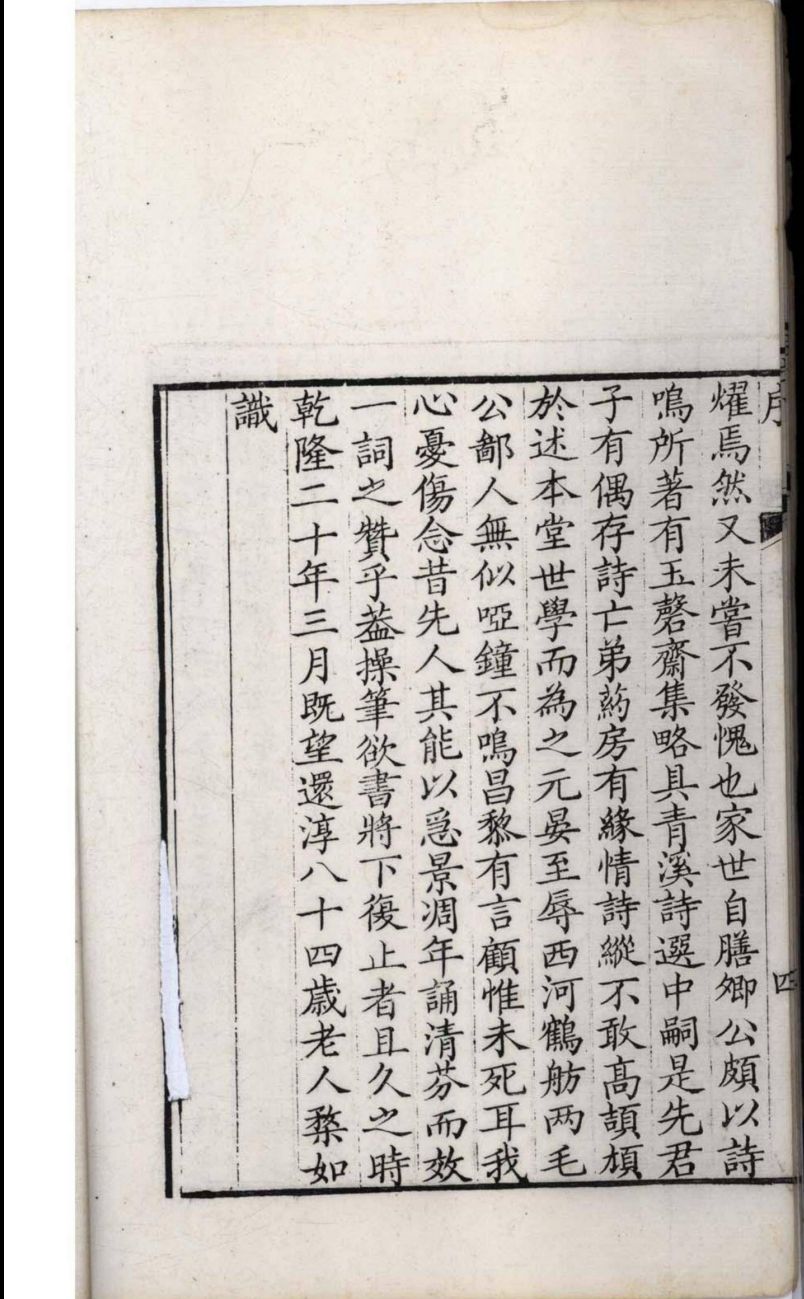 序
四
燿焉然又未嘗不發愧也家世自膳卿公頗以詩
鳴所著有玉磬齋集略具青溪詩選中嗣是先君
子有偶存詩亡弟葯房有緣情詩縱不敢高頡頏
於述本堂世學而為之元晏至辱西河鶴舫两毛
公鄙人無似啞鐘不鳴昌黎有言顧惟未死耳我
心憂傷念昔先人其能以急景凋年誦清芬而效
一詞之贊乎葢操筆欲書將下復止者且久之時
乾隆二十年三月既望還淳八十四歲老人棻如
識